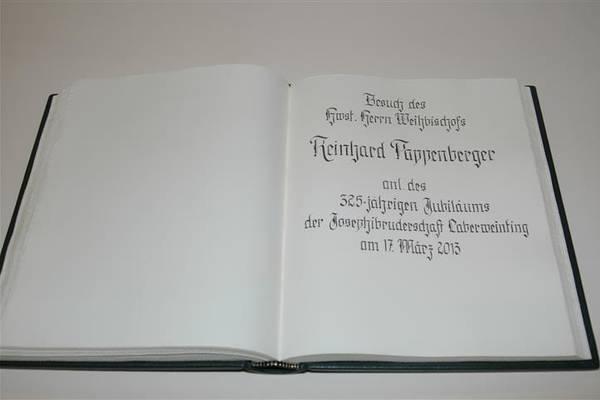 Besuch des
Hwst. Herrn Weihbischofs
Reinhard Pappenberger
anl. des
325-jährigen Jubiläums
der Josephibruderschaft Laberweinting
am 17. März 2013